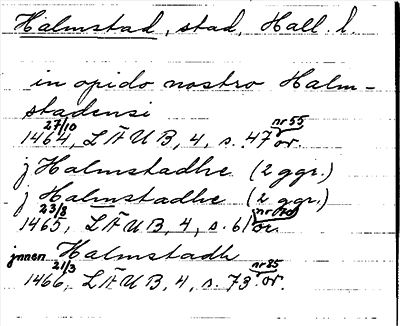 Halmstad, stad, Hall. l.
in opido nostro Halm-
stadensi
27/10 nr 55
1464, LÄUB, 4, s. 47 or.
j Halmstadhe (2 ggr.)
j Halmstadhe (2 ggr.)
23/8
1465, LÄUB, 4, s. 61 or.
jnnen Halmstadh
21/3 nr 85
1466, LÄUB, 4, s. 73 or.